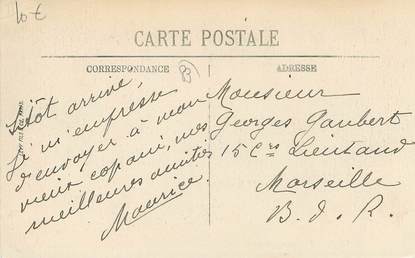 10 €
CARTE POSTALE
CORRESPONDANCE
ADRESSE
Sitôt arrivé,
je m'empresse
d'envoyer à mon
vieux copain, mes
meilleures amitiés
Maurice.
Monsieur
Georges Gaubert
15 Crs Lieutaud
Marseille
B. d. R.